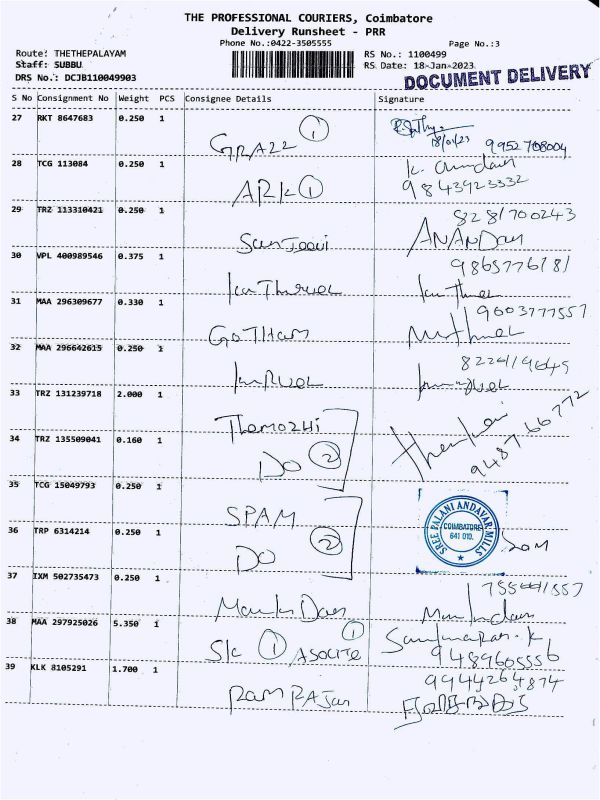 THE PROFESSIONAL COURIERS, Coimbatore
Delivery Runsheet - PRR
Phone No.:0422-3505555
Page No.:3
Route: THETHEPALAYAM
RS No.: 1100499
Staff: SUBBU
RS Date: 18-Jan-2023
DRS No.: DCJB110049903
DOCUMENT DELIVERY
S No Consignment No Weight PCS Consignee Details Signature
27 RKT 8647683 0.250 1
GRAZZ 1
18/01/23 9952708004
28 TCG 113084 0.250 1
ARK 1
9843923332
29 TRZ 113310421 0.250 1
ANANDan
30 VPL 400989546 0.375 1
31 MAA 296309677 0.330 1
GOTHam
9603777557
32 MAA 296642615 0.250 1
33 TRZ 131239718 2.000 1
Themozhi
948766772
34 TRZ 135509041 0.160 1
DO 2
35 TCG 15049793 0.250 1
SPAM
SREE PALANI ANDAVAR MILLS
COIMBATORE
641 010.
36 TRP 6314214 0.250 1
DO 2
37 IXM 502735473 0.250 1
38 MAA 297925026 5.350 1
1
9489605556
39 KLK 8105291 1.700 1
RamRAJan
9944264874